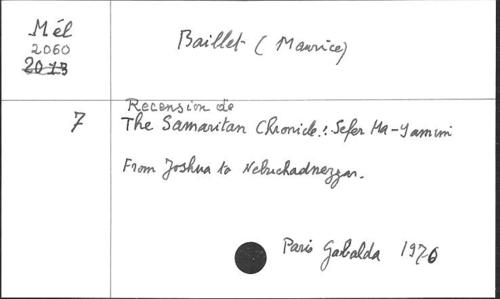 Mél
2060
2013
Baillet (Maurice)
7
Recension de
The Samaritan Chronicle: Sefer Ha-Yamim
From Joshua to Nebuchadnezzar.
Paris Gabalda 1976